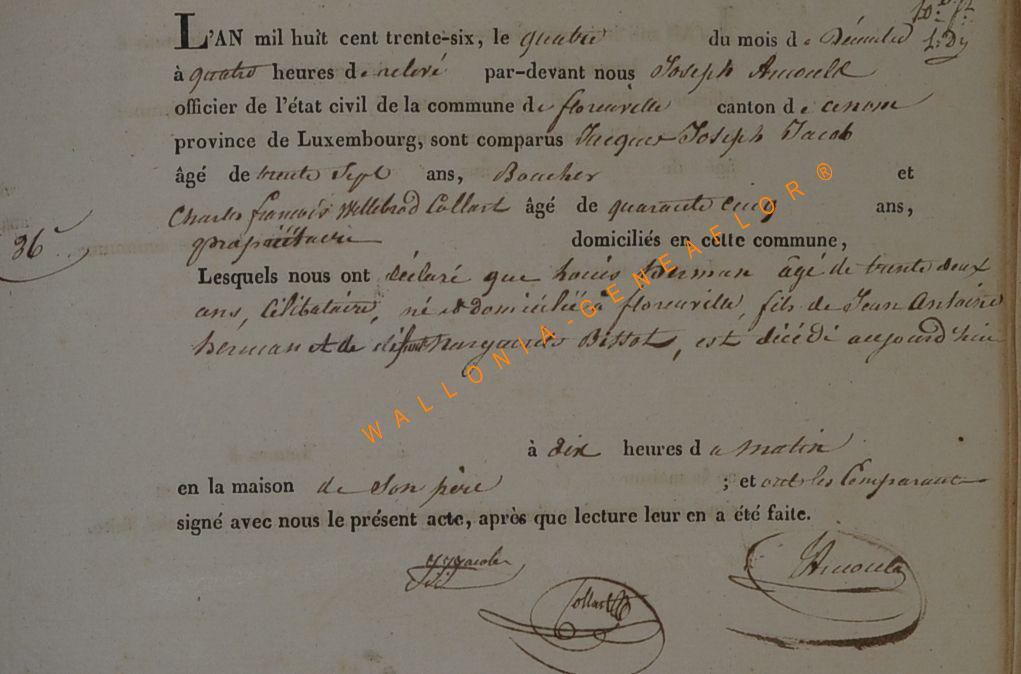 L'AN mil huit cent trente-six, le quatre du mois de Décembre
à quatre heures de relevé par-devant nous Joseph Arnould
officier de l'état civil de la commune de florenville canton de
province de Luxembourg, sont comparus Jacques Joseph Jacob
âgé de trente Sept ans, Boucher et
Charles françois Willebrod Collart âgé de quarante cinq ans,
propriétaire domiciliés en cette commune,
36
Lesquels nous ont déclaré que Louis herman âgé de trente deux
ans, Célibataire, né et domicilié à florenville, fils de Jean Antoine
herman et de défunt Marguerite Bissot, est décédé aujourd'hui
à dix heures du matin
en la maison de Son père ; et ont les Comparant
signé avec nous le présent acte, après que lecture leur en a été faite.
JJJacob
Collart
Arnould
WALLONIA-GENEAFLOR ®